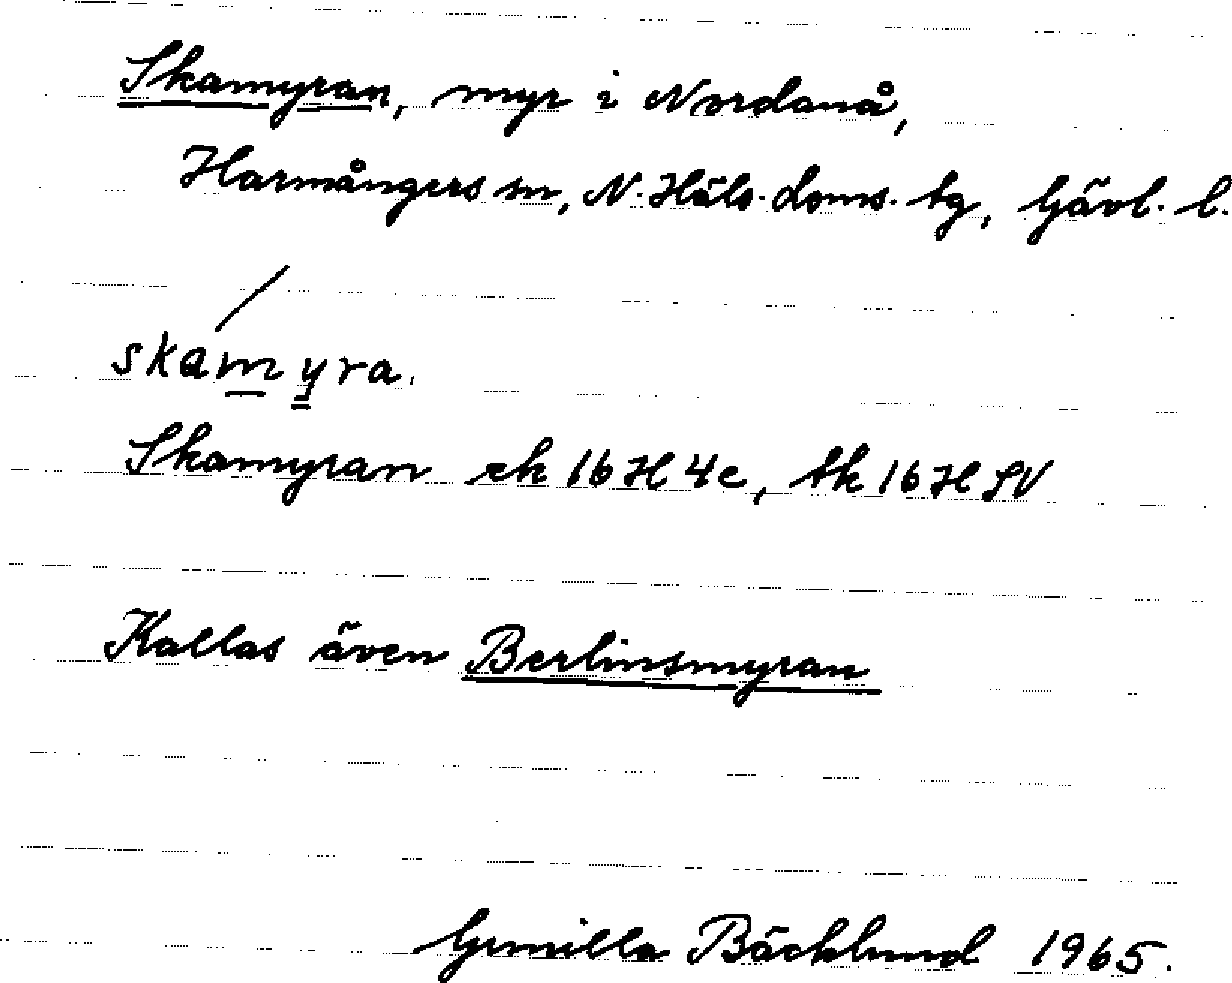 Skamyran, myr i Nordanå,
Harmångers sn, N. Häls. doms. tg, Gävl. l.
skamyra.
Skamyran ek 16H4c, tk 16H SV
Kallas även Berlinsmyran
Gunilla Bäcklund 1965.